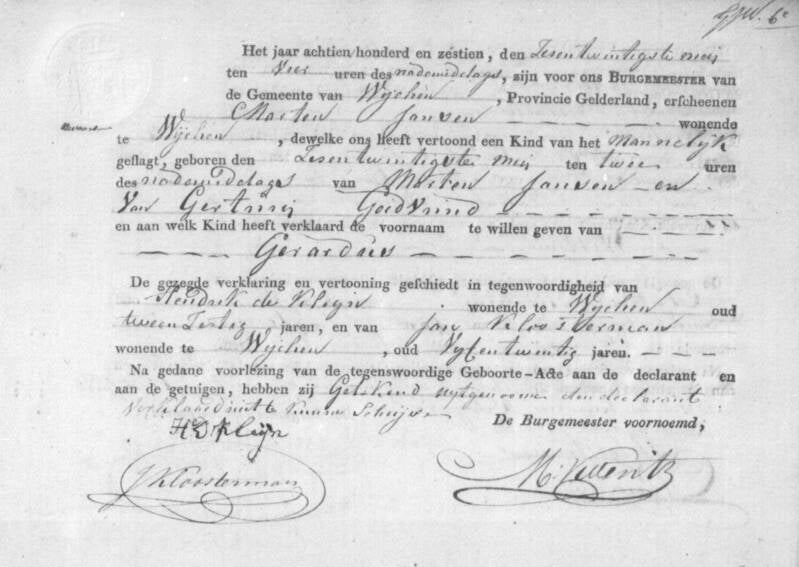 6e
Het jaar achtien honderd en zéstien, den Zesentwintigste meij
ten vier uren des nademiddags, zijn voor ons BURGEMEESTER van
de Gemeente van Wychen, Provincie Gelderland, erscheenen
Marten Jansen — — — — wonende
te Wychen, dewelke ons heeft vertoond een Kind van het Mannelyk
geslagt, geboren den Zesentwintigste meij ten twee uren
des nademiddags van Marten Jansen en
van Gertruij — — — — —
en aan welk Kind heeft verklaard de voornaam te willen geven van — — — —
— — — — Gerardus — — — — — —
De gezegde verklaring en vertooning geschiedt in tegenwoordigheid van
Hendrik de Kleijn wonende te Wychen oud
tweenDertig jaren, en van Jan Kloosterman
wonende te Wychen, oud Vyfentwintig jaren. — — —
Na gedane voorlezing van de tegenswoordige Geboorte-Acte aan de declarant en
aan de getuigen, hebben zij Getekend uytgenoomen den declarant
verklaard niet te kunnen Schrijven
De Burgemeester voornoemd,
HDKleijn
JKloosterman